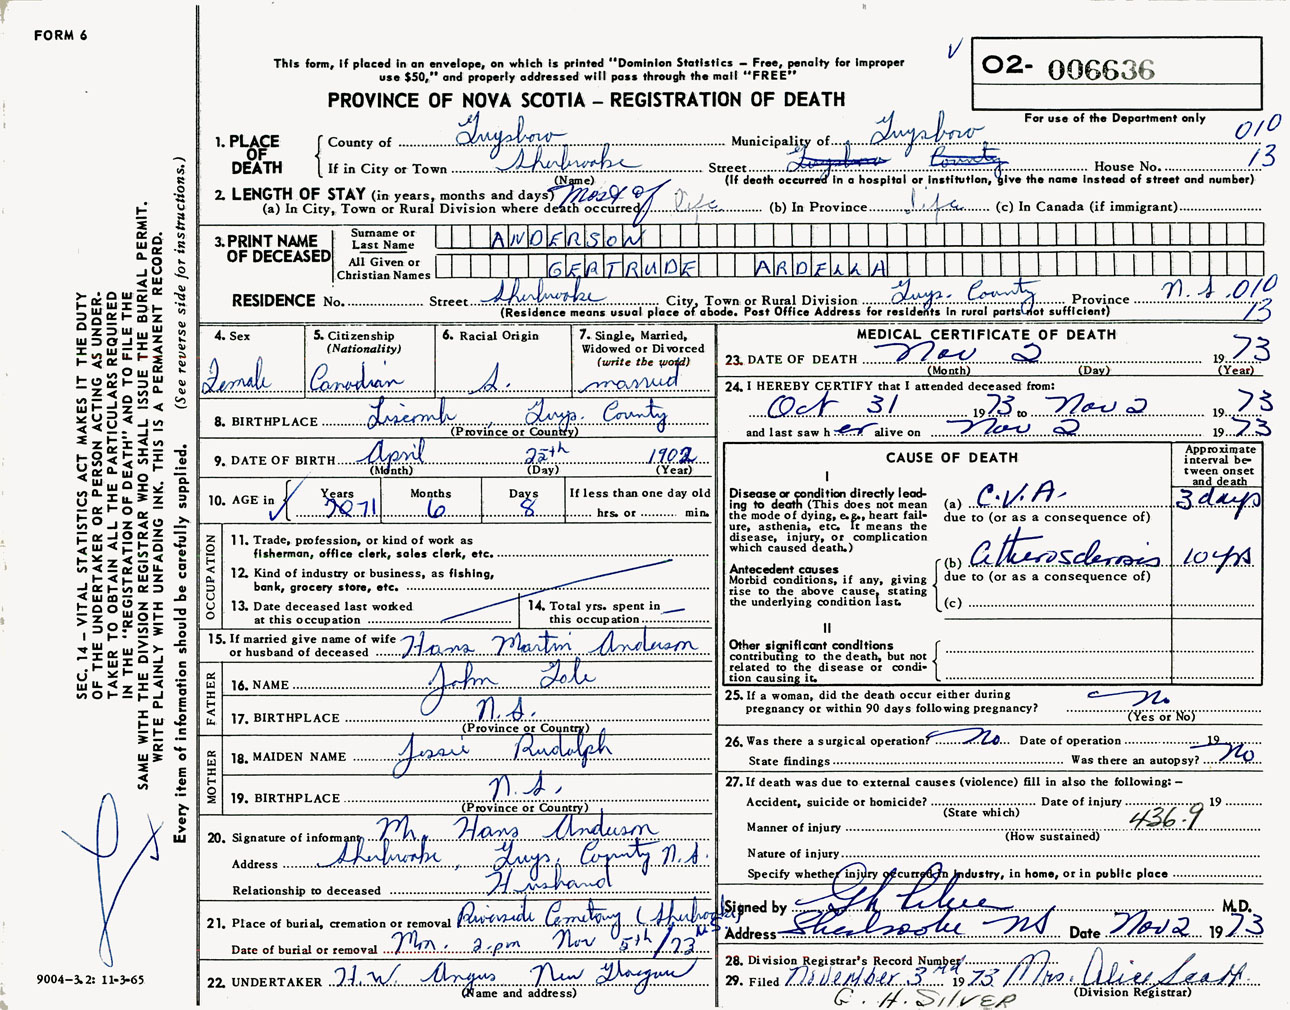 FORM 6
This form, if placed in an envelope, on which is printed "Dominion Statistics – Free, penalty for improper
use $50," and properly addressed will pass through the mail "FREE"
PROVINCE OF NOVA SCOTIA – REGISTRATION OF DEATH
02- 006636
For use of the Department only
010
13
1. PLACE OF DEATH
County of Guysboro Municipality of Guysboro
If in City or Town Sherbrooke Street Guysboro County House No.
(Name) (If death occurred in a hospital or institution, give the name instead of street and number)
2. LENGTH OF STAY (in years, months and days) Most of
(a) In City, Town or Rural Division where death occurred life (b) In Province life (c) In Canada (if immigrant)
3. PRINT NAME OF DECEASED
Surname or Last Name ANDERSON
All Given or Christian Names GERTRUDE ARDELLA
RESIDENCE No. Street Sherbrooke City, Town or Rural Division Guys. County Province N.S. 010
13
(Residence means usual place of abode. Post Office Address for residents in rural parts not sufficient)
4. Sex
Female
5. Citizenship
(Nationality)
Canadian
6. Racial Origin
7. Single, Married,
Widowed or Divorced
(write the word)
married
8. BIRTHPLACE Liscomb Guys. County
(Province or Country)
9. DATE OF BIRTH April 25th 1902
(Month) (Day) (Year)
10. AGE in Years 71 Months 6 Days 8 If less than one day old
hrs. or min.
OCCUPATION
11. Trade, profession, or kind of work as
fisherman, office clerk, sales clerk, etc.
12. Kind of industry or business, as fishing,
bank, grocery store, etc.
13. Date deceased last worked
at this occupation
14. Total yrs. spent in
this occupation
15. If married give name of wife
or husband of deceased Hans Martin Anderson
FATHER
16. NAME John
17. BIRTHPLACE N.S.
(Province or Country)
MOTHER
18. MAIDEN NAME Jessie Rudolph
19. BIRTHPLACE N.S.
(Province or Country)
20. Signature of informant Mr. Hans Anderson
Address Sherbrooke, Guys, County N.S.
Relationship to deceased Husband
21. Place of burial, cremation or removal Riverside Cemetery (Sherbrooke) N.S.
Date of burial or removal Mon. 2 pm Nov 5th/73
22. UNDERTAKER H.W. Angus New Glasgow
(Name and address)
MEDICAL CERTIFICATE OF DEATH
23. DATE OF DEATH Nov 2 1973
(Month) (Day) (Year)
24. I HEREBY CERTIFY that I attended deceased from:
Oct 31 1973 to Nov 2 1973
and last saw her alive on Nov 2 1973
CAUSE OF DEATH
Approximate
interval be-
tween onset
and death
I
Disease or condition directly lead-
ing to death (This does not mean
the mode of dying, e.g., heart fail-
ure, asthenia, etc. It means the
disease, injury, or complication
which caused death.)
(a) C.V.A. 3 days
due to (or as a consequence of)
Antecedent causes
Morbid conditions, if any, giving
rise to the above cause, stating
the underlying condition last.
(b) Atherosclerosis 10 yrs
due to (or as a consequence of)
(c)
II
Other significant conditions
contributing to the death, but not
related to the disease or condi-
tion causing it.
25. If a woman, did the death occur either during
pregnancy or within 90 days following pregnancy? No
(Yes or No)
26. Was there a surgical operation? No Date of operation 19
State findings Was there an autopsy? No
27. If death was due to external causes (violence) fill in also the following: –
Accident, suicide or homicide? Date of injury 19
(State which)
Manner of injury 436.9
(How sustained)
Nature of injury
Specify whether injury occurred in Industry, in home, or in public place
Signed by M.D.
Address Sherbrooke NS Date Nov 2 1973
28. Division Registrar's Record Number
29. Filed November 3rd 1973 Mrs. Alice Scott
(Division Registrar)
G. H. SILVER
SEC. 14 – VITAL STATISTICS ACT MAKES IT THE DUTY
OF THE UNDERTAKER OR PERSON ACTING AS UNDER-
TAKER TO OBTAIN ALL THE PARTICULARS REQUIRED
IN THE "REGISTRATION OF DEATH" AND TO FILE THE
SAME WITH THE DIVISION REGISTRAR WHO SHALL ISSUE THE BURIAL PERMIT.
WRITE PLAINLY WITH UNFADING INK. THIS IS A PERMANENT RECORD.
Every item of information should be carefully supplied. (See reverse side for instructions.)
9004-3.2: 11-3-65